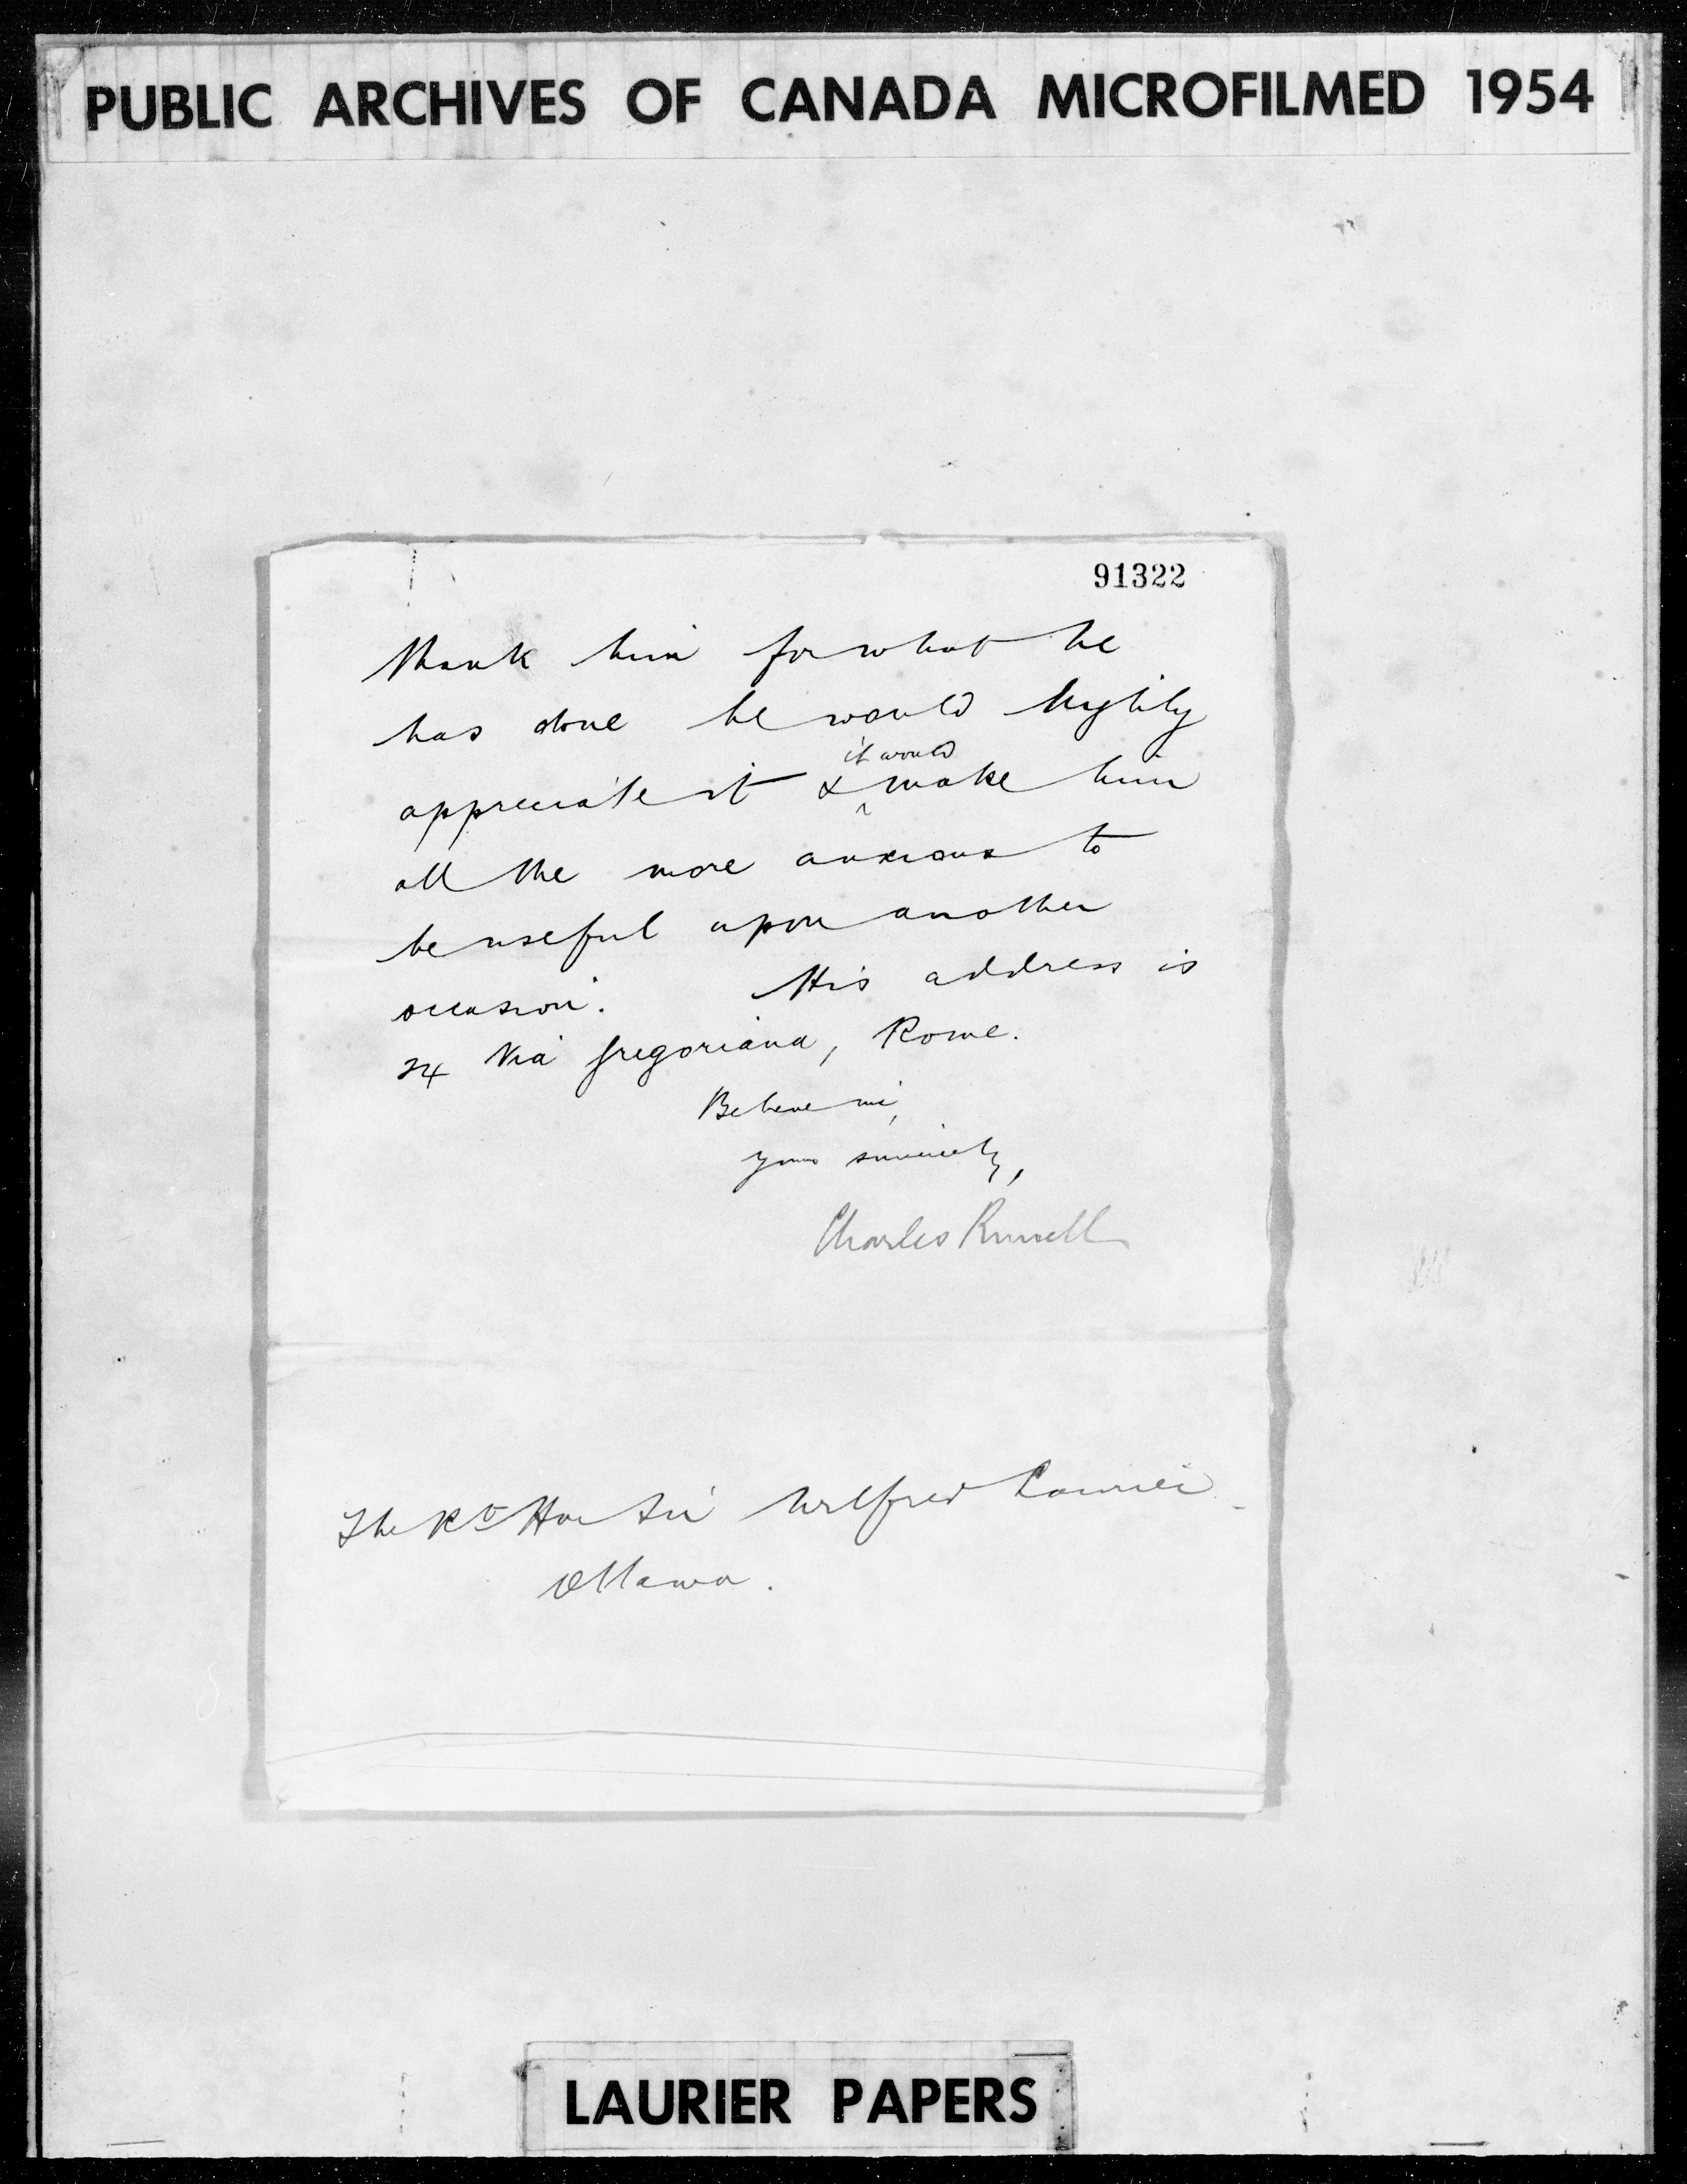 PUBLIC ARCHIVES OF CANADA MICROFILMED 1954
91322
thank him for what he
has done he would highly
it would
appreciate it & ^ make him
all the more anxious to
be useful upon another
occasion. His address is
24 Via Gregoriana, Rome.
Believe me,
yours sincerely,
Charles Russell
The Rt Hon Sir Wilfred Laurier
Ottawa.
LAURIER PAPERS